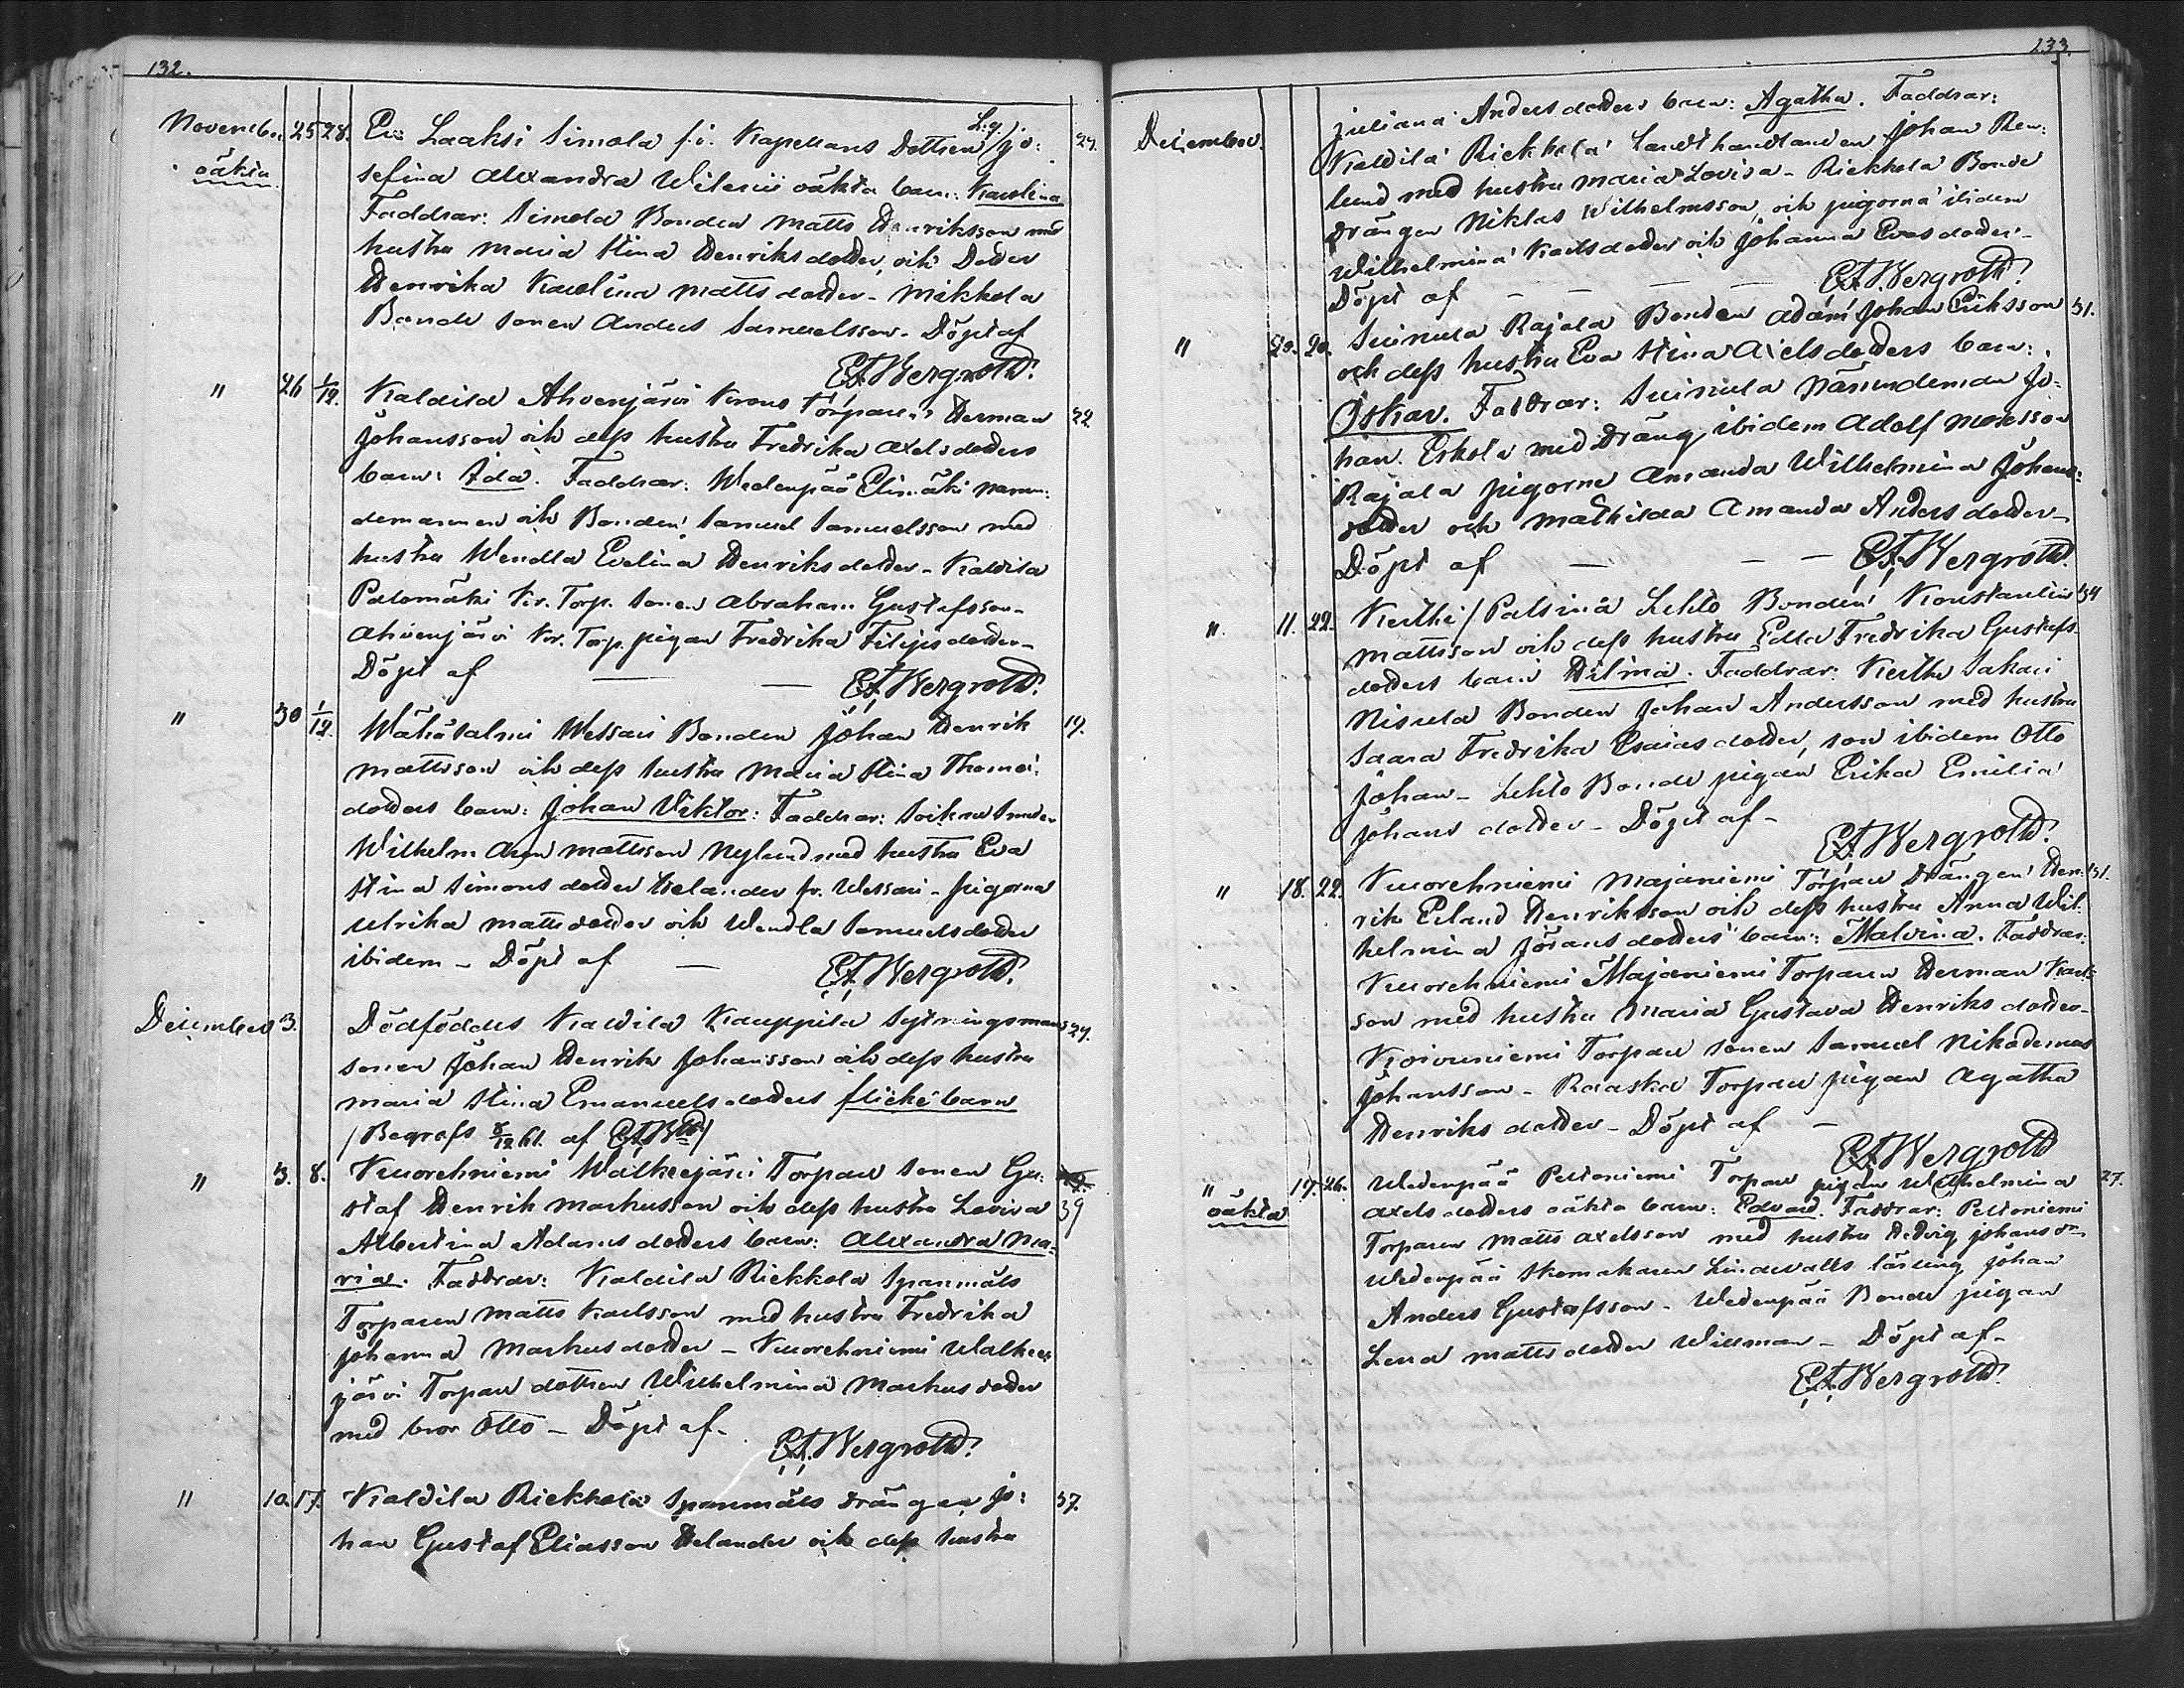 132.
November 25 28. Laaksi Simola f.i. Kapellans Dottren Jo- 27.
oäkta sefina Alexandra Wilenii oäkta barn: Karolina
Faddrar: Simola Bonden Matts Henriksson med
hustru Maria Stina Henriksdotter, och Dotter
Henrika Karolina Mattsdotter - Mikkola
Bonde sonen Anders Samuelsson - Döpt af
E.F. Bergroth.
" 26 1/12. Kaldila Ahvenjärvi Krono Torparen Herman 22
Johansson och dess hustru Fredrika Axelsdotters
barn: Ida. Faddrar: Wedenpää Elimäki Nämn-
demannen och Bonden Samuel Samuelsson med
hustru Wendla Evelina Henriksdotter - Kaldila
Palomäki Kr. Torp. sonen Abraham Gustafsson -
Ahvenjärvi Kr. Torp. pigan Fredrika Filipsdotter -
Döpt af — — E.F. Bergroth.
" 30 1/12. Wähäsalmi Wessari Bonden Johan Henrik 19.
Mattsson och dess hustru Maria Stina Thomæ-
dotters barn: Johan Viktor: Faddrar:
Wilhelm Aron Mattsson Nylund med hustru Eva
Stina Simonsdotter Helander fr. Wessari - pigorna
Ulrika Mattsdotter och Wendla Samuelsdotter
ibidem - Döpt af — E.F. Bergroth.
December 3. Dödföddes Kaldila Kauppila Sytningsmans 24.
sonen Johan Henrik Johansson och dess hustru
Maria Stina Emanuelsdotters flickebarn
/Begrofs 8/12 61. af E.F. Bth/
" 3. 8. Kuorehniemi Walkeejärvi Torpare sonen Gu-
staf Henrik Markusson och dess hustru Lovisa 39
Albertina Adamsdotters barn: Alexandra Ma-
ria. Faddrar: Kaldila Riekkola Spanmåls
Torparen Matts Karlsson med hustru Fredrika
Johanna Markusdotter - Kuorehniemi Walkee-
järvi Torpare dottren Wilhelmina Markusdotter
med bror Otto - Döpt af -
E.F. Bergroth.
" 10. 17. Kaldila Riekkola Spanmåls drängen Jo- 37.
han Gustaf Eliasson Helander och dess hustru
133.
December. Juliana Andersdotters barn: Agatha. Faddrar:
Kaldila Riekkola Landthandlanden Johan Ren-
lund med hustru Maria Lovisa - Riekkola Bonde
drängen Niklas Wilhelmsson, och pigorna ibidem
Wilhelmina Karlsdotter och Johanna Evasdotter -
Döpt af — — — — E.F. Bergroth.
" 20. 20. Suinula Rajala Bonden Adam Johan Eriksson 31.
och dess hustru Eva Stina Axelsdotters barn:
Oskar. Faddrar: Suinula Nämndeman Jo-
han Eskola med dräng ibidem Adolf Mosesson
Rajala pigorne Amanda Wilhelmina Johans-
dotter och Mathilda Amanda Andersdotter -
Döpt af — — E.F. Bergroth.
" 11. 22. Keithi/Palsinä Lehto Bonden Konstantin 34
Mattsson och dess hustru Edla Fredrika Gustafs-
dotters barn Hilma. Faddrar: Sakari
Nisula Bonden Johan Andersson med hustru
Saara Fredrika Esaiasdotter, son ibidem Otto
Johan - Lehto Bonde pigan Erika Emilia
Johansdotter - Döpt af -
E.F. Bergroth.
" 18. 22. Kuorehniemi Majaniemi Torpare drängen Hen- 31.
rik Erland Henriksson och dess hustru Anna Wil-
helmina Jöransdotters barn: Malvina. Faddrar:
Kuorehniemi Majaniemi Torparen Herman Karls-
son med hustru Maria Gustava Henriksdotter -
Koivuniemi Torpare sonen Samuel Nikodemus
Johansson - Raiska Torpare pigan Agatha
Henriksdotter - Döpt af —
E.F. Bergroth
" 17. 26. Wedenpää Peltoniemi Torpare pigan Wilhelmina 27.
oäkta Axelsdotters oäkta barn: Edvard. Faddrar: Peltoniemi
Torparen Matts Axelsson med hustru Hedvig Johansdr -
Wedenpää Skomakaren Lindevalls lärling Johan
Anders Gustafsson - Wedenpää Bonde pigan
Lena Mattsdotter Willman - Döpt af -
E.F. Bergroth.